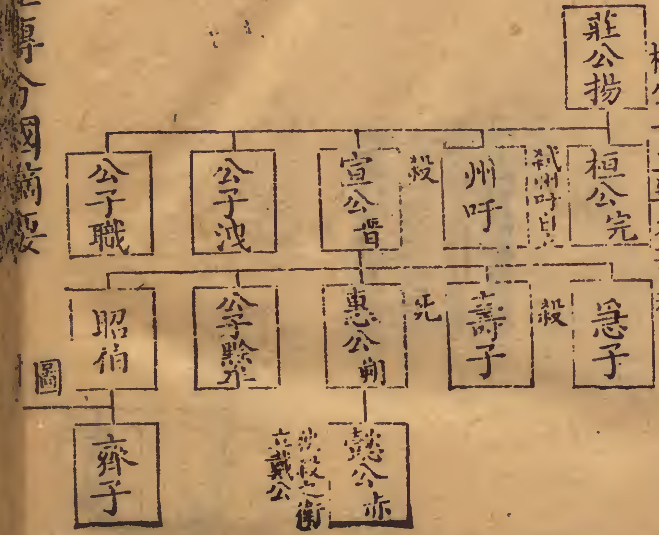 莊公揚
桓公完
弒州吁
州吁
殺
宣公晋
公子洩
公子職
急子
殺
壽子
死
惠公朔
公子黔牟
昭伯
懿公赤
狄殺之衛
立戴公
齊子
圖
傳分國摘要